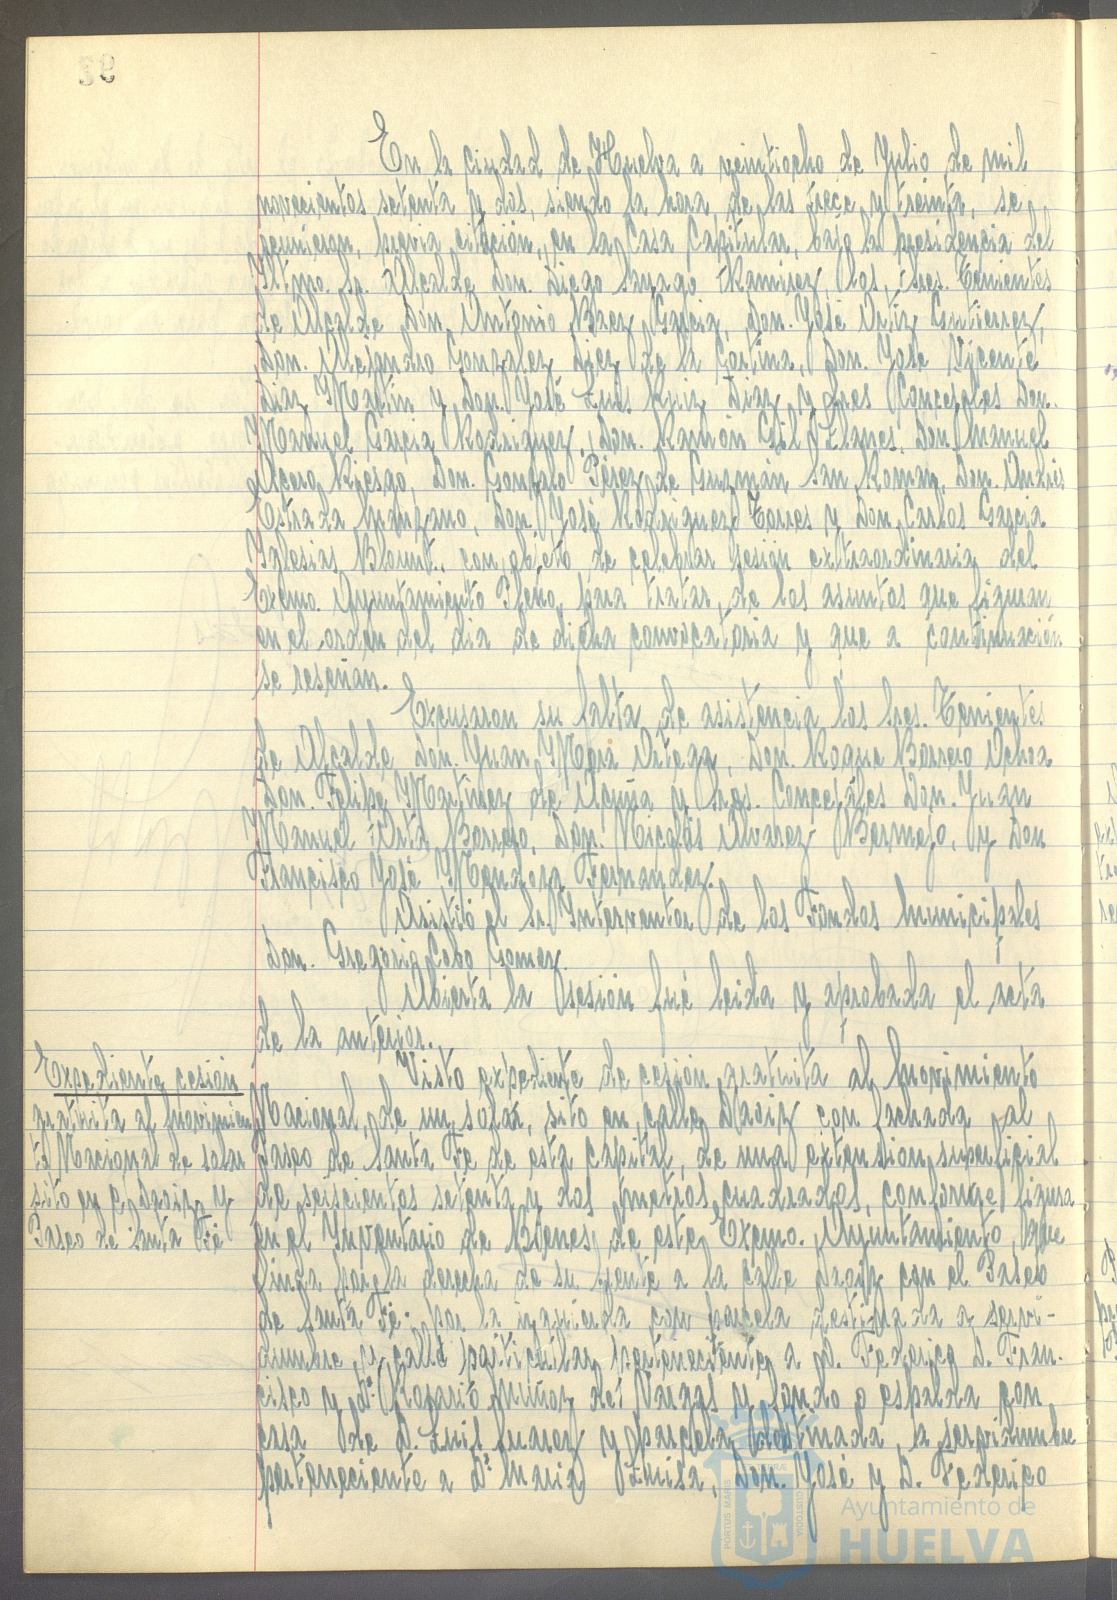 39
En la ciudad de Huelva a veintiocho de Julio de mil
novecientos setenta y dos, siendo la hora de las trece y treinta, se
reunieron, previa citación, en la Casa Capitular, bajo la presidencia del
Iltmo. Sr. Alcalde Don. Diego Sayago Ramirez los, Sres. Tenientes
de Alcalde Don. Antonio Baez Garcia, Don. José Ortiz Gutierrez,
Don. Alejandro Gonzalez Diez de la Cortina, Don. Jose Vicente
Diaz Martin y Don. José Luis Ruiz Diaz y Sres Concejales Don.
Manuel Garcia Rodriguez, Don. Ramón Gil Llanes, Don Manuel
Acero Riesgo, Don. Gonzalo Pérez de Guzmán San Roman, Don. Andrés
Estrada Manzano, Don José Rodriguez Torres y Don Carlos Garcia
Iglesias Blount, con objeto de celebrar sesión extraordinaria del
Excmo. Ayuntamiento Pleno, para tratar, de los asuntos que figuran
en el orden del dia de dicha convocatoria y que a continuación
se reseñan.
Excusaron su falta de asistencia los Sres. Tenientes
de Alcalde Don. Juan Mora Ortega, Don. Roque Borrero Ochoa
Don. Felipe Martinez de Acuña y Sres. Concejales Don. Juan
Manuel Orta Borrero, Don. Nicolás Alvarez Bermejo, y Don
Francisco José Mendoza Fernandez.
Asistió el Sr. Interventor de los Fondos Municipales
Don. Gregorio Cobo Gomez.
Abierta la sesión fué leida y aprobada el acta
de la anterior.
Expediente cesión
gratuita al Movimien
to Nacional de solar
sito en c. Daoiz y
Paseo de Santa Fé
Visto expediente de cesión gratuita al Movimiento
Nacional, de un solar, sito en calle Daoiz con fachada al
Paseo de Santa Fe de esta Capital, de una extension superficial
de seiscientos setenta y dos metros cuadrados, conforme figura
en el Inventario de Bienes de este Excmo. Ayuntamiento, que
linda por la derecha de su frente a la calle Daoiz con el Paseo
de Santa Fé; por la izquierda con parcela destinada a servi-
dumbre, y calle particular perteneciente a D. Federico D. Fran-
cisco y Dª. Rosario Muñoz de Vargas y fondo o espalda con
casa de D. Luis Suarez y parcela destinada, a servidumbre
perteneciente a Dª Maria Luisa, Don. José y D. Federico
Ayuntamiento de
HUELVA
PORTUS MARIS
CUSTODIA